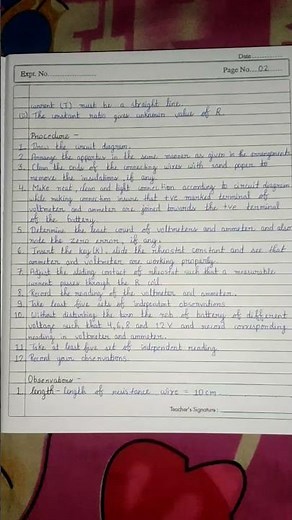 Date
Expt. No.
Page No. 02
current (I) must be a straight line.
(ii) The constant ratio gives unknown value of R.
Procedure -
1. Draw the circuit diagram.
2. Arrange the apparatus in the same manner as given in the arrangements
3. Clean the ends of the connecting wires with sand paper to
remove the insulations, if any.
4. Make neat, clean and tight connection according to circuit diagram
while making connection insure that +ve marked terminal of
voltmeter and ammeter are joined towards the +ve terminal
of the battery.
5. Determine the least count of voltmeters and ammeter, and also
note the zero error, if any.
6. Insert the key (K) slide the rheostat constant and see that
ammeter and voltmeter are working properly.
7. Adjust the sliding contact of rheostat such that a measurable
current passes through the R coil
8. Record the reading of the voltmeter and ammeter.
9. Take at least five sets of independent observations.
10. Without disturbing the turn the rich of battery of different
voltage such that 4, 6, 8 and 12 V and record corresponding
reading in voltmeter and ammeter.
11. Take at least five set of independent reading.
12. Record your observations.
Observations -
1. Length - length of resistance wire = 10 cm
Teacher's Signature :